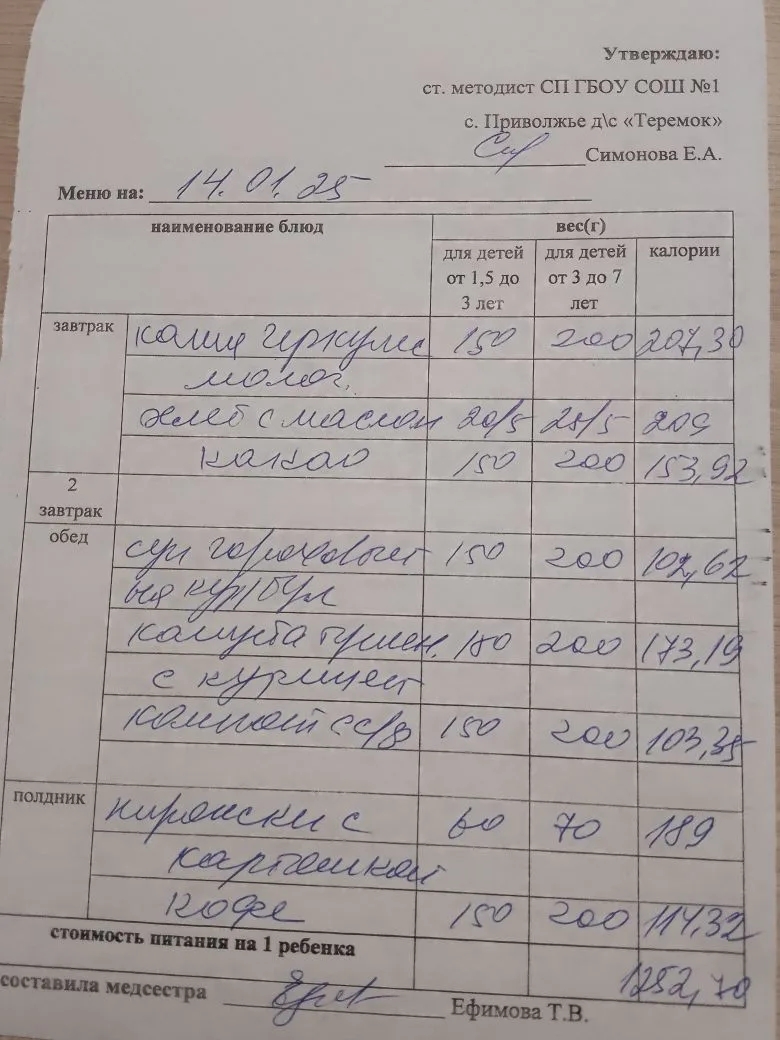 Утверждаю:
ст. методист СП ГБОУ СОШ №1
с. Приволжье д\с «Теремок»
Симонова Е.А.
Меню на: 14.01.25
наименование блюд вес(г)
для детей от 1,5 до 3 лет для детей от 3 до 7 лет калории
завтрак каша геркулес 150 200 207,30
молоч.
хлеб с маслом 20/5 25/5 209
какао 150 200 153,92
2 завтрак
обед суп гороховый 150 200 102,62
на кур/бул
капуста тушен. 180 200 173,19
с курицей
компот с с/ф 150 200 103,35
полдник пирожки с 60 70 189
картошкой
кофе 150 200 114,32
стоимость питания на 1 ребенка
1252,70
составила медсестра Ефимова Т.В.